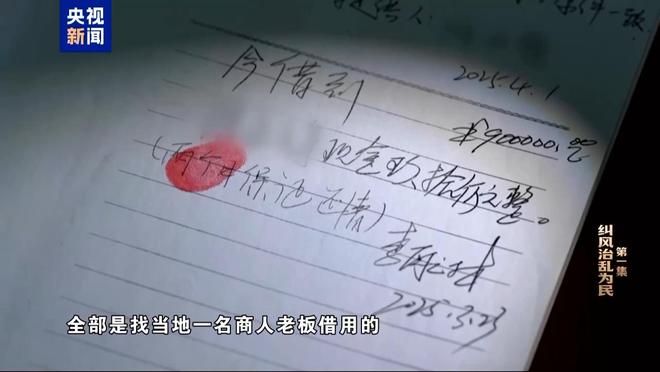 央视
新闻
2025.4.1
今借到
¥900000.00
现金玖拾万元整。
(两个月保证还清)
2025.3.23
第一集
纠风治乱为民
全部是找当地一名商人老板借用的